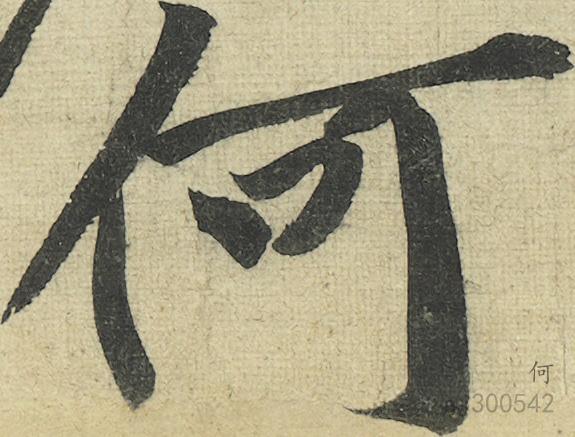 何
何
300542